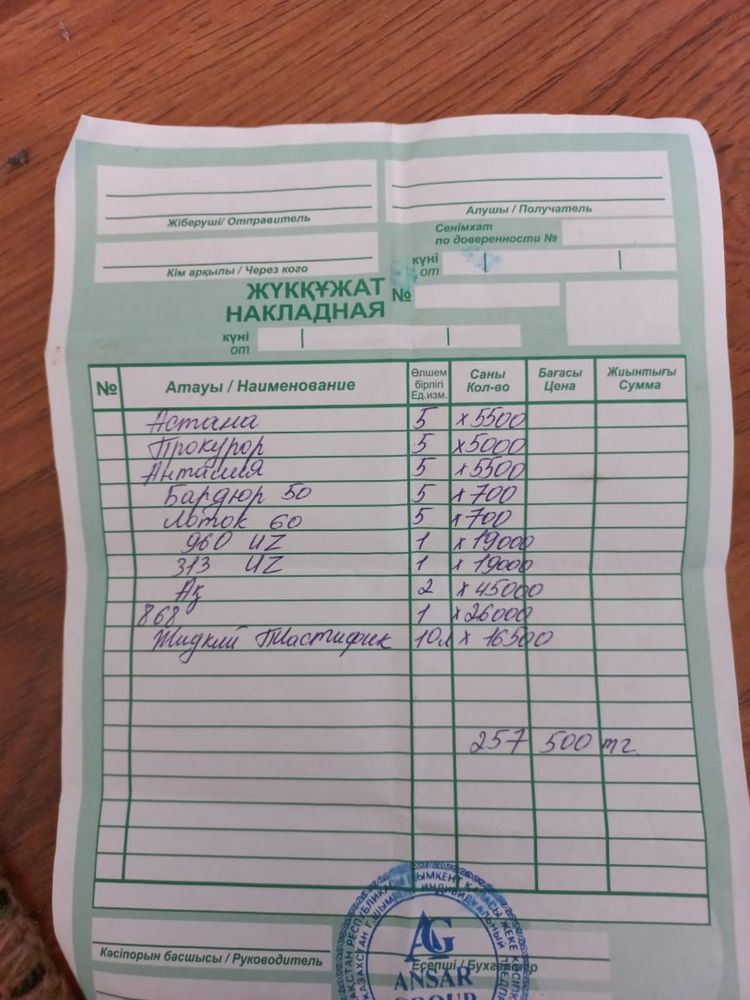 Жіберуші/ Отправитель
Алушы / Получатель
Сенімхат
по доверенности №
Кім арқылы / Через кого
күні
от
ЖҮКҚҰЖАТ
НАКЛАДНАЯ
№
күні
от
№ Атауы / Наименование Өлшем бірлігі Ед.изм. Саны Кол-во Бағасы Цена Жиынтығы Сумма
Астана 5 х5500
Прокурор 5 х5000
Анталия 5 х5500
Бардюр 50 5 х700
Лоток 60 5 х700
960 UZ 1 х19000
313 UZ 1 х19000
Аз 2 х45000
868 1 х26000
Жидкий Пластифик 10л х 16500
257 500 тг.
Кәсіпорын басшысы / Руководитель
Есепші / Бухгалтер
ШЫМКЕНТ ҚАЛАСЫ ЖЕКЕ
ИНДИВИДУАЛЬНЫЙ
AG
ANSAR
GROUP